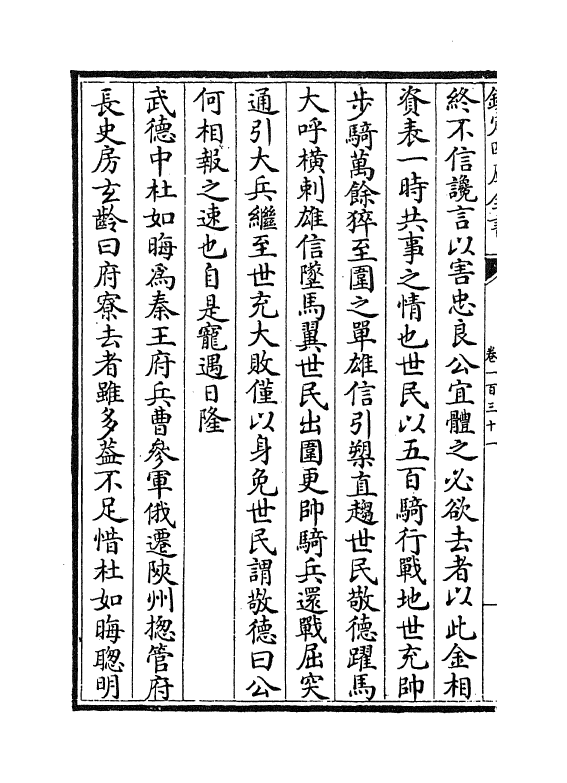 欽定四庫全書
卷一百三十一
終不信讒言以害忠良公宜體之必欲去者以此金相
資表一時共事之情也世民以五百騎行戰地世充帥
步騎萬餘猝至圍之單雄信引槊直趨世民敬德躍馬
大呼橫刺雄信墜馬翼世民出圍更帥騎兵還戰屈突
通引大兵繼至世充大敗僅以身免世民謂敬德曰公
何相報之速也自是寵遇日隆
武德中杜如晦爲秦王府兵曹參軍俄遷陝州揔管府
長史房玄齡曰府寮去者雖多葢不足惜杜如晦聰明